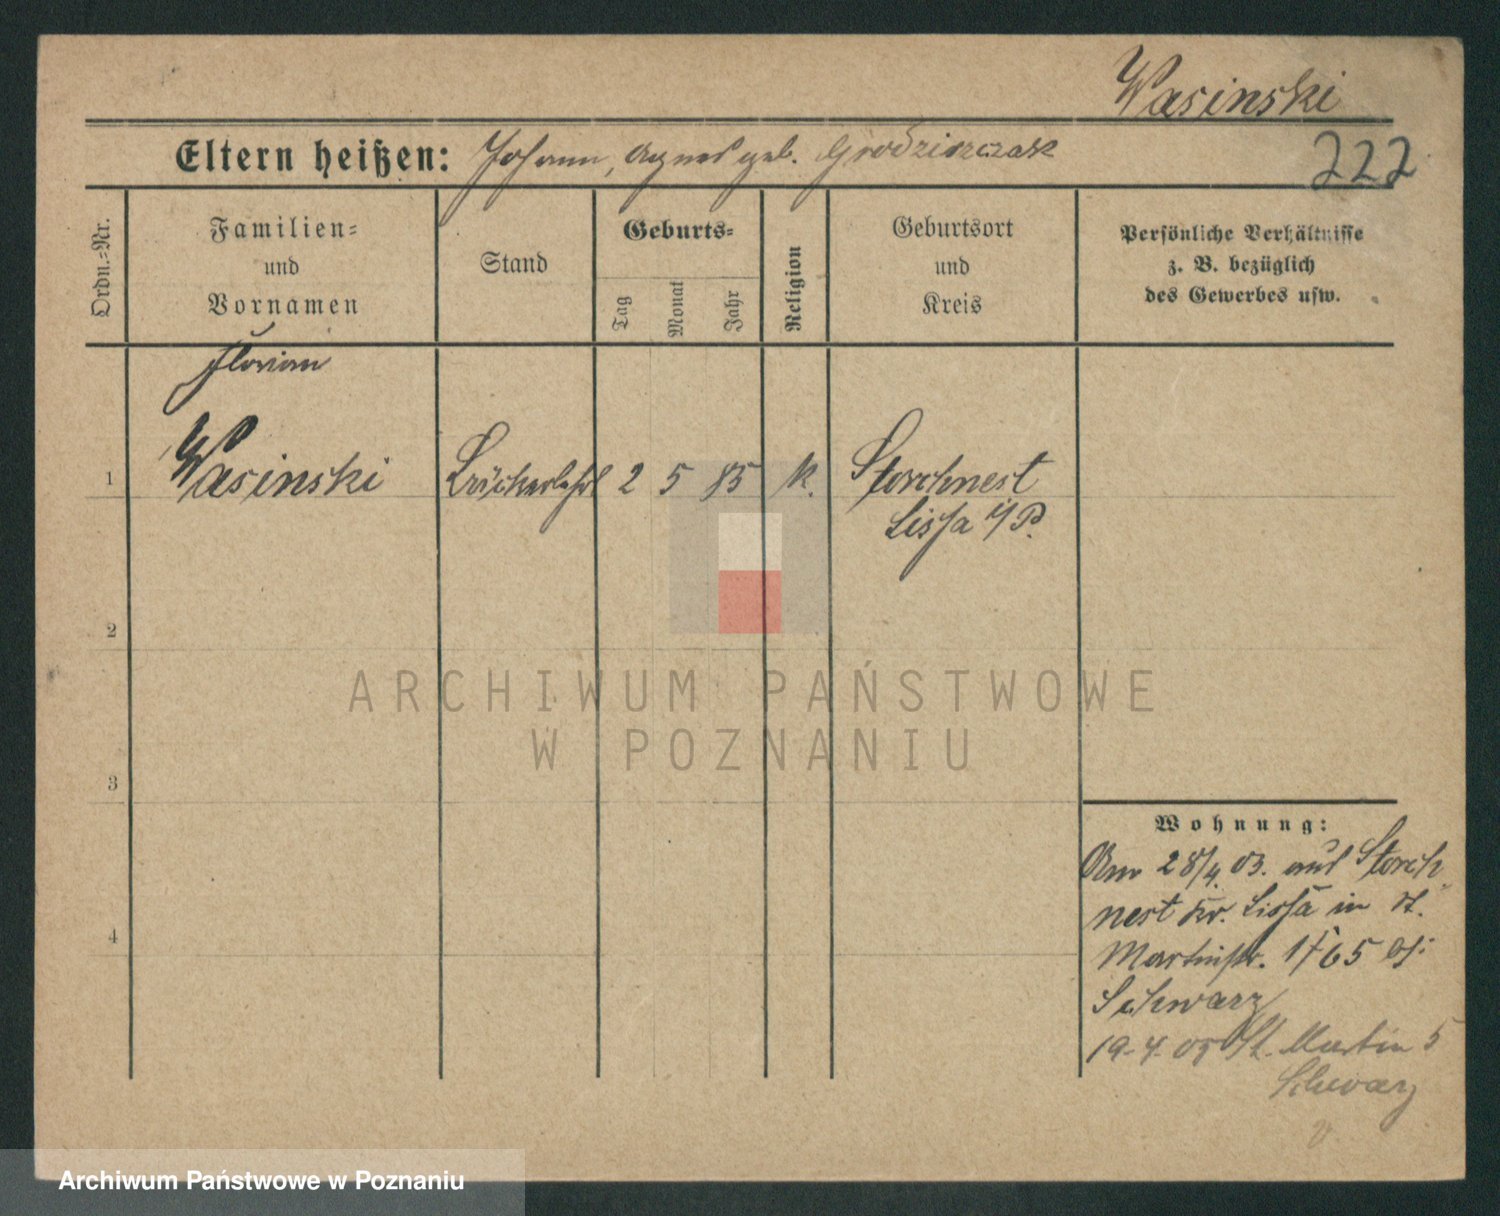 Wasinski
222
Eltern heißen: Johann, Agnes geb. Grodziszczak
Ordn.-Nr.
Familien-
und
Vornamen
Stand
Geburts-
Tag
Monat
Jahr
Religion
Geburtsort
und
Kreis
Persönliche Verhältnisse
z. B. bezüglich
des Gewerbes usw.
Florian
1 Wasinski Bäckerlehrl 2 5 85 k. Storchnest
Lissa i/P.
2
3
4
ARCHIWUM PAŃSTWOWE
W POZNANIU
Wohnung:
Am 28/4. 03. aus Storch
nest Kr. Lissa in St.
Martinstr. bei
Schwarz
St. Martin 5
Schwarz
Archiwum Państwowe w Poznaniu